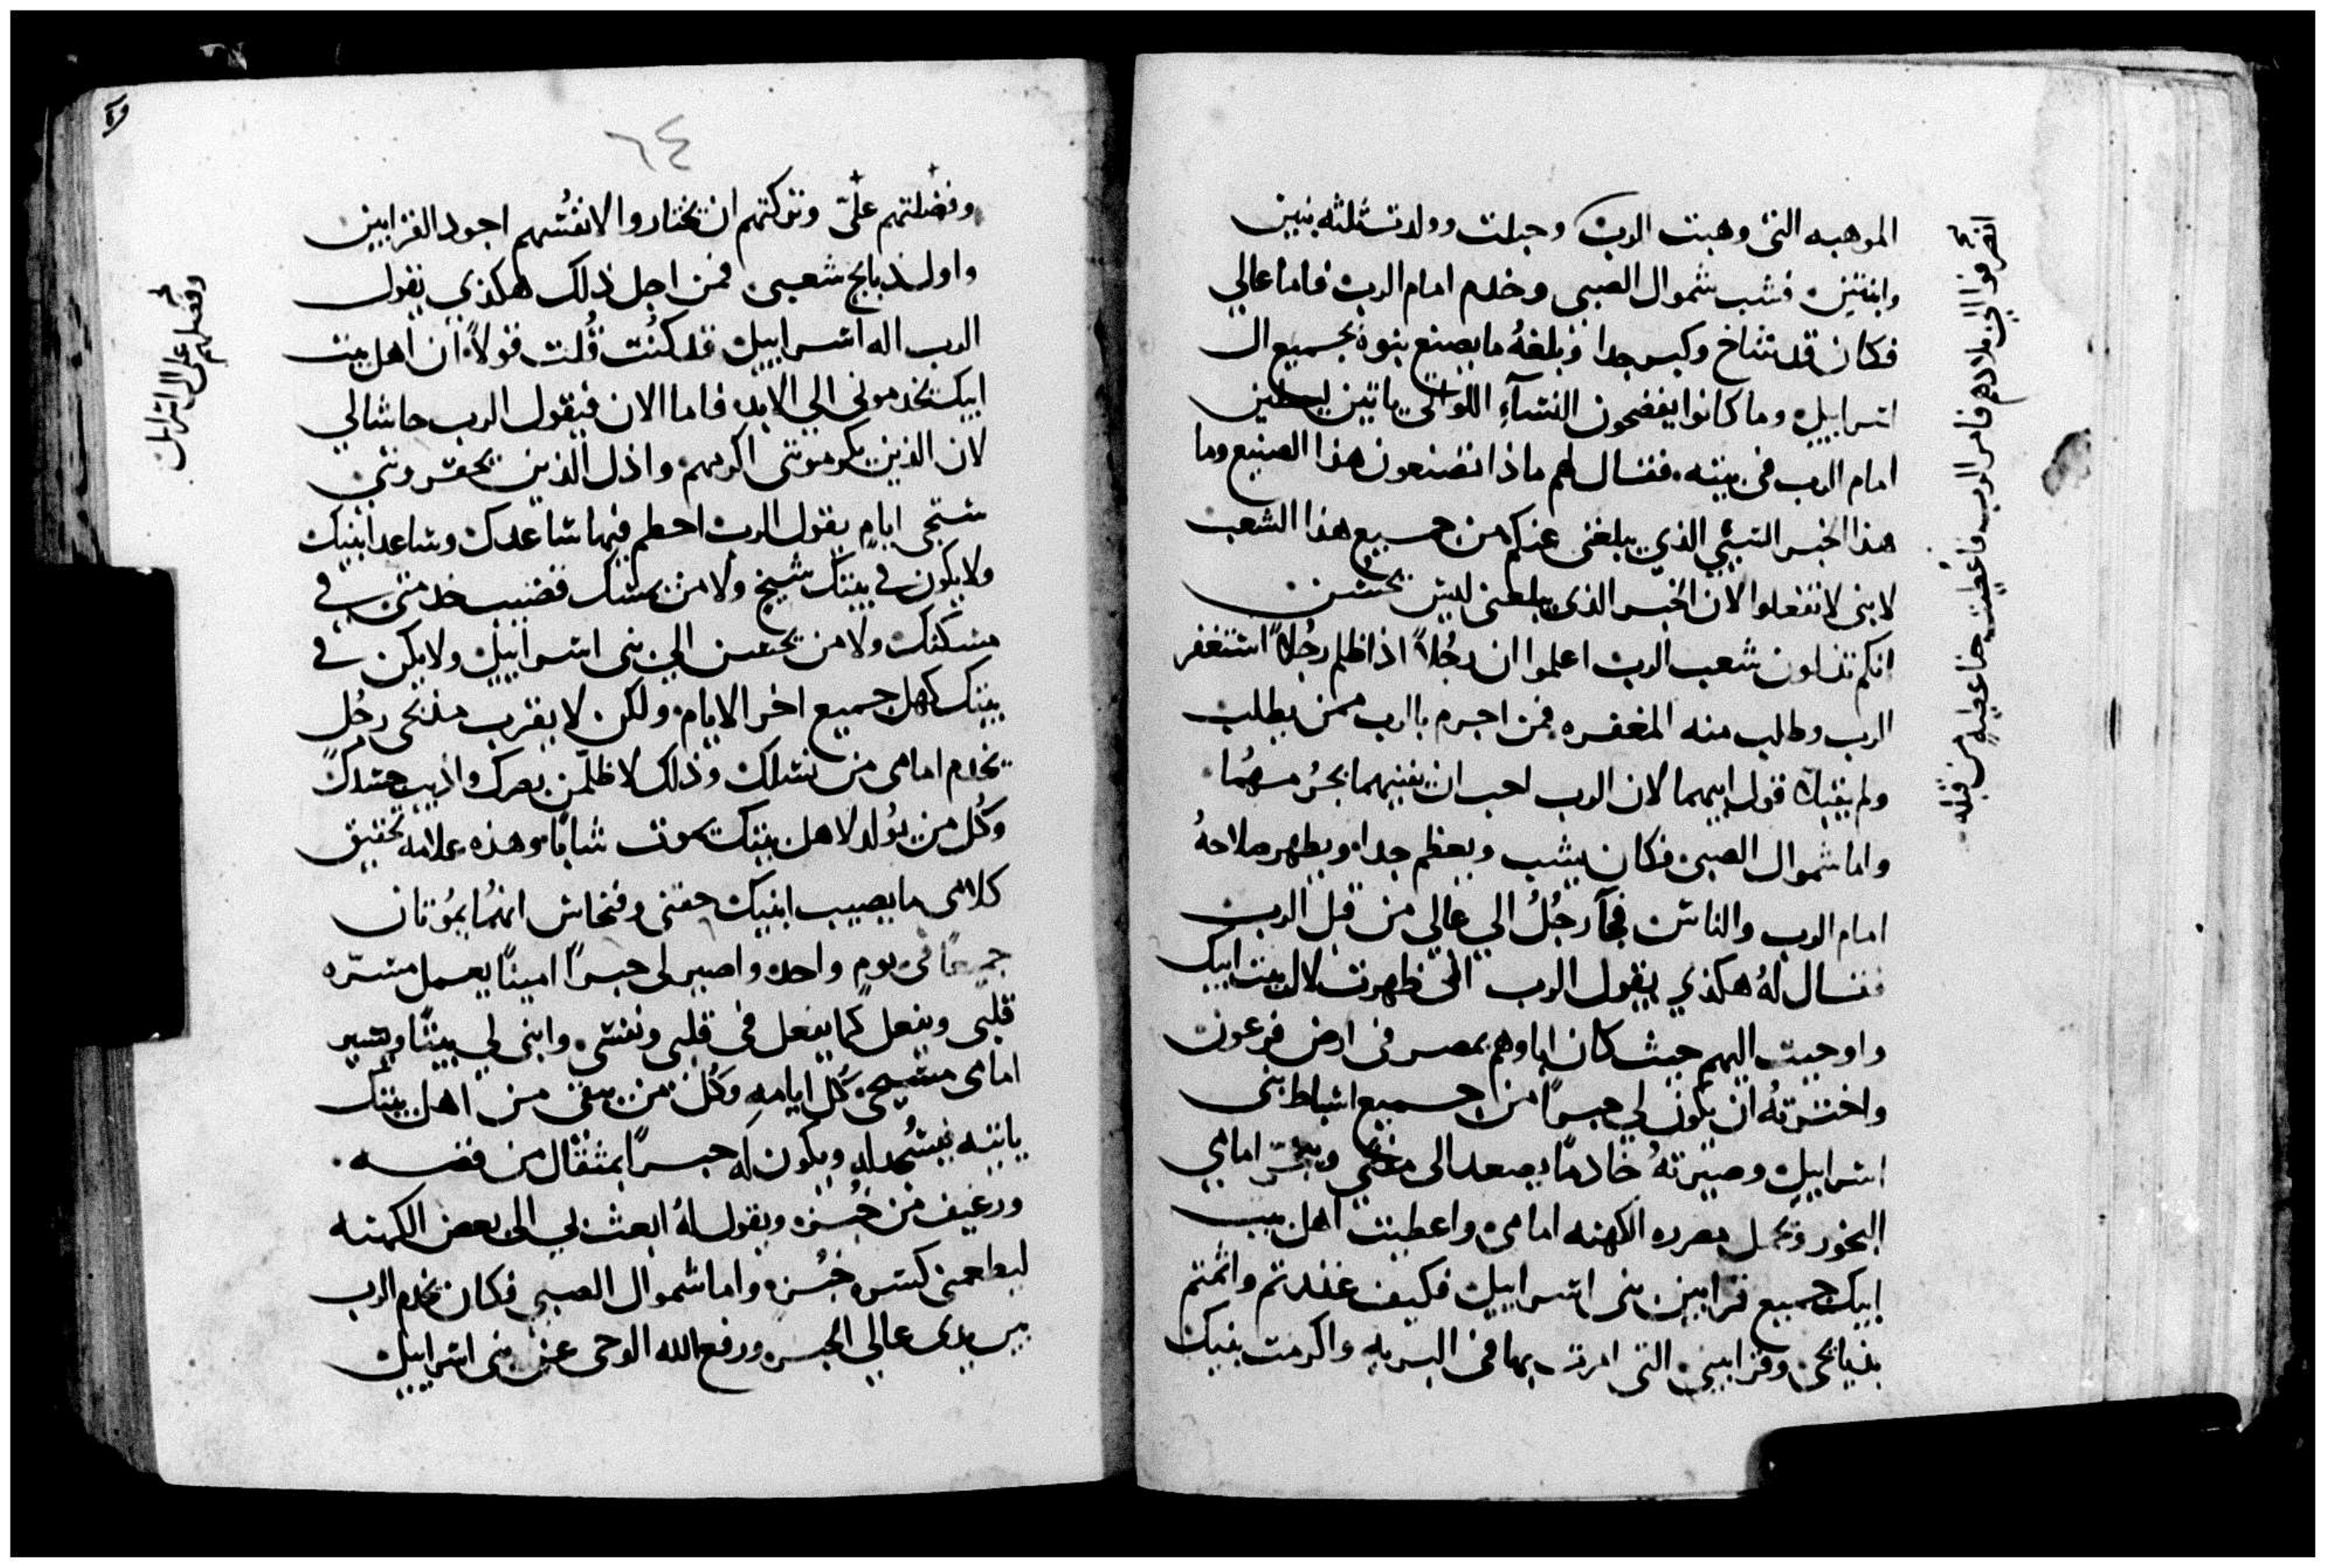 الموهبه التى وهبت الرب وحبلت وولدت ثلثه بنين
وابنتين فشب شموال الصبى وخدم امام الرب فاما عالي
فكان قد شاخ وكبر جدا وبلغهُ ما يصنع بنوه بجميع ال
اسراييل وما كانوا يفضحون النسآء اللواتى ياتين ليصلين
امام الرب فى بيته فقال لهم ماذا تصنعون هذا الصنيع وما
هذا الخبر السيي الذي يبلغنى عنكم من جميع هذا الشعب
لا بنى لا تفعلوا لان الخبر الذى يبلغنى ليس بحسن
انكم تذلون شعب الرب اعلموا ان رجُلاً اذا ظلم رجُلاً استغفر
الرب وطلب منه المغفره فمن اجرم بالرب ممن يطلب
ولم يقبلا قول ابيهما لان الرب احب ان يفنيهما بجُرمهُما
واما شموال الصبى فكان يشب ويعظم جدا ويظهر صلاحهُ
امام الرب والناس فجآ رجُلُ الي عالي من قبل الرب
فقال لهُ هكذي يقول الرب انى ظهرت لال بيت ابيك
واوحيت اليهم حيث كان اباوهم بمصر فى ارض فرعون
واخترتهُ ان يكون لي حبراً من جميع اسباط بنى
اسراييل وصيرتهُ خادماً يصعد الى مذبحي ويبخر امامي
البخور ويحمل بعرده الكهنه امامى واعطيت اهل بيت
ابيك جميع قرابين بنى اسراييل فكيف غدرتم واثمتم
بذبايحى وقرابينى التى امرت بها فى البريه واكرمت بنيك
انصرفوا الى بلادهم فامر الرب فاعطيت حنا عطيه من قبله
٦٤
وفضلتهم علىّ وتركتهم ان يختاروا لانفُسهم اجود القرابين
واول ذبايح شعبى فمن اجل ذلك هكذي يقول
الرب اله اسراييل قد كنُت قُلت قولاً ان اهل بيت
ابيك يخدمونى الي الابد فاما الان فيقول الرب حاشا لي
لان الذين يكرمونى اكرمهم واذل الذين يحقرونني
ستجى ايام يقول الرب احطم فيها ساعدك وساعد ابيك
ولا يكون في بيتك شيخ ولا من يمسك قضيب خدمتى في
مسكنك ولا من يحسن الي بنى اسراييل ولا يكن في
بيتك كهل جميع اخر الايام ولكن لا يقرب مذبحى رجُل
يخدم امامى من نسلك وذلك لاظلّمن بصرك واذيب جسدك
وكُل من يُولد لاهل بيتك يموت شاباً وهذه علامه تحقيق
كلامى ما يصيب ابنيك حفنى وفنحاس انهُما يمُوتان
جميعاً فى يوم واحد واصير لى حبراً اميناً يعمل مسرّه
قلبى ويفعل كما يفعل فى قلبى ونفسى وابنى لي بيتاً ويسير
امامى مسيحى كُل ايامه وكُل من يبقى من اهل بيتك
ياتيه فيسُجد له ويكون له حبراً بمثقال من فضه
ورغيف من خُبز ويقول لهُ ابعث بي الى بعض الكهنه
ليطعمنى كسره خُبزه واما شموال الصبى فكان يخدم الرب
بين يدى عالي الحبر ورفع الله الوحى عن بنى اسراييل